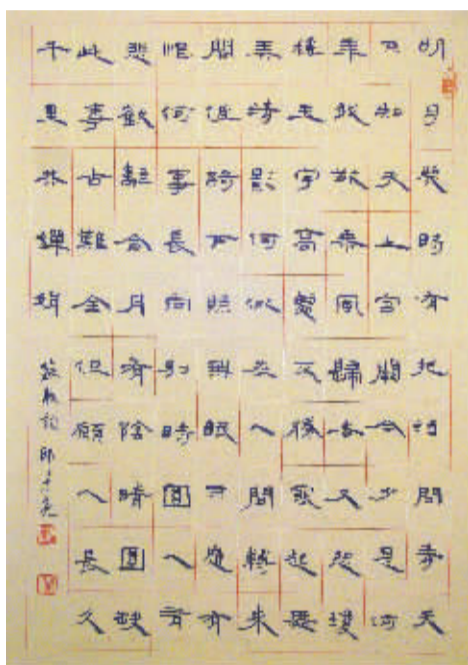 明月幾時有把酒問青天
不知天上宮闕今夕是何
年我欲乘風歸去又恐瓊
樓玉宇高處不勝寒起舞
弄清影何似在人間轉朱
閣低綺戶照無眠不應有
恨何事長向別時圓人有
悲歡離合月有陰晴圓缺
此事古難全但願人長久
千里共嬋娟